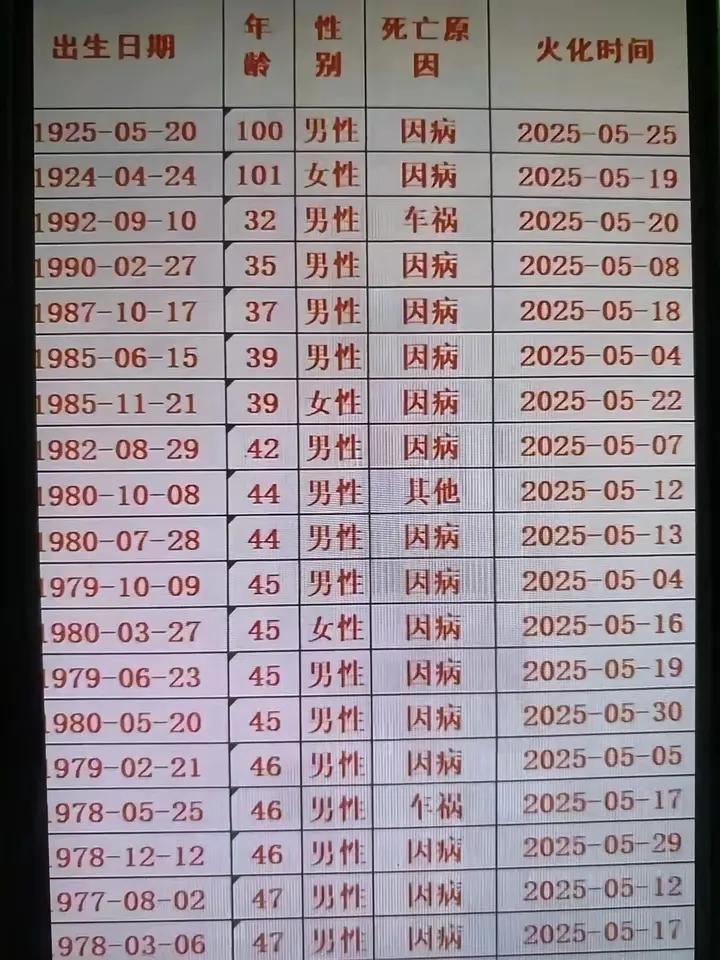 出生日期 年龄 性别 死亡原因 火化时间
1925-05-20 100 男性 因病 2025-05-25
1924-04-24 101 女性 因病 2025-05-19
1992-09-10 32 男性 车祸 2025-05-20
1990-02-27 35 男性 因病 2025-05-08
1987-10-17 37 男性 因病 2025-05-18
1985-06-15 39 男性 因病 2025-05-04
1985-11-21 39 女性 因病 2025-05-22
1982-08-29 42 男性 因病 2025-05-07
1980-10-08 44 男性 其他 2025-05-12
1980-07-28 44 男性 因病 2025-05-13
1979-10-09 45 男性 因病 2025-05-04
1980-03-27 45 女性 因病 2025-05-16
1979-06-23 45 男性 因病 2025-05-19
1980-05-20 45 男性 因病 2025-05-30
1979-02-21 46 男性 因病 2025-05-05
1978-05-25 46 男性 车祸 2025-05-17
1978-12-12 46 男性 因病 2025-05-29
1977-08-02 47 男性 因病 2025-05-12
1978-03-06 47 男性 因病 2025-05-17